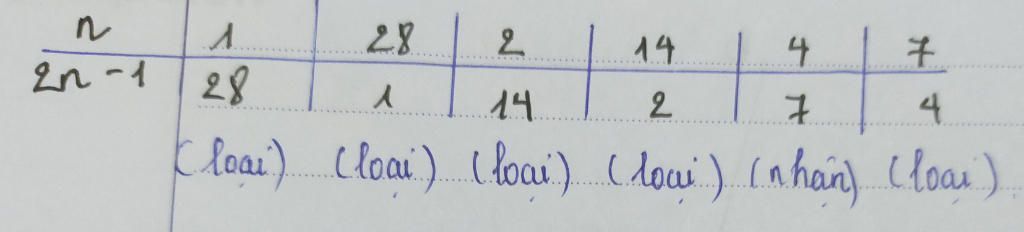 n 1 28 2 14 4 7
2n - 1 28 1 14 2 7 4
(loại) (loại) (loại) (loại) (nhận) (loại)